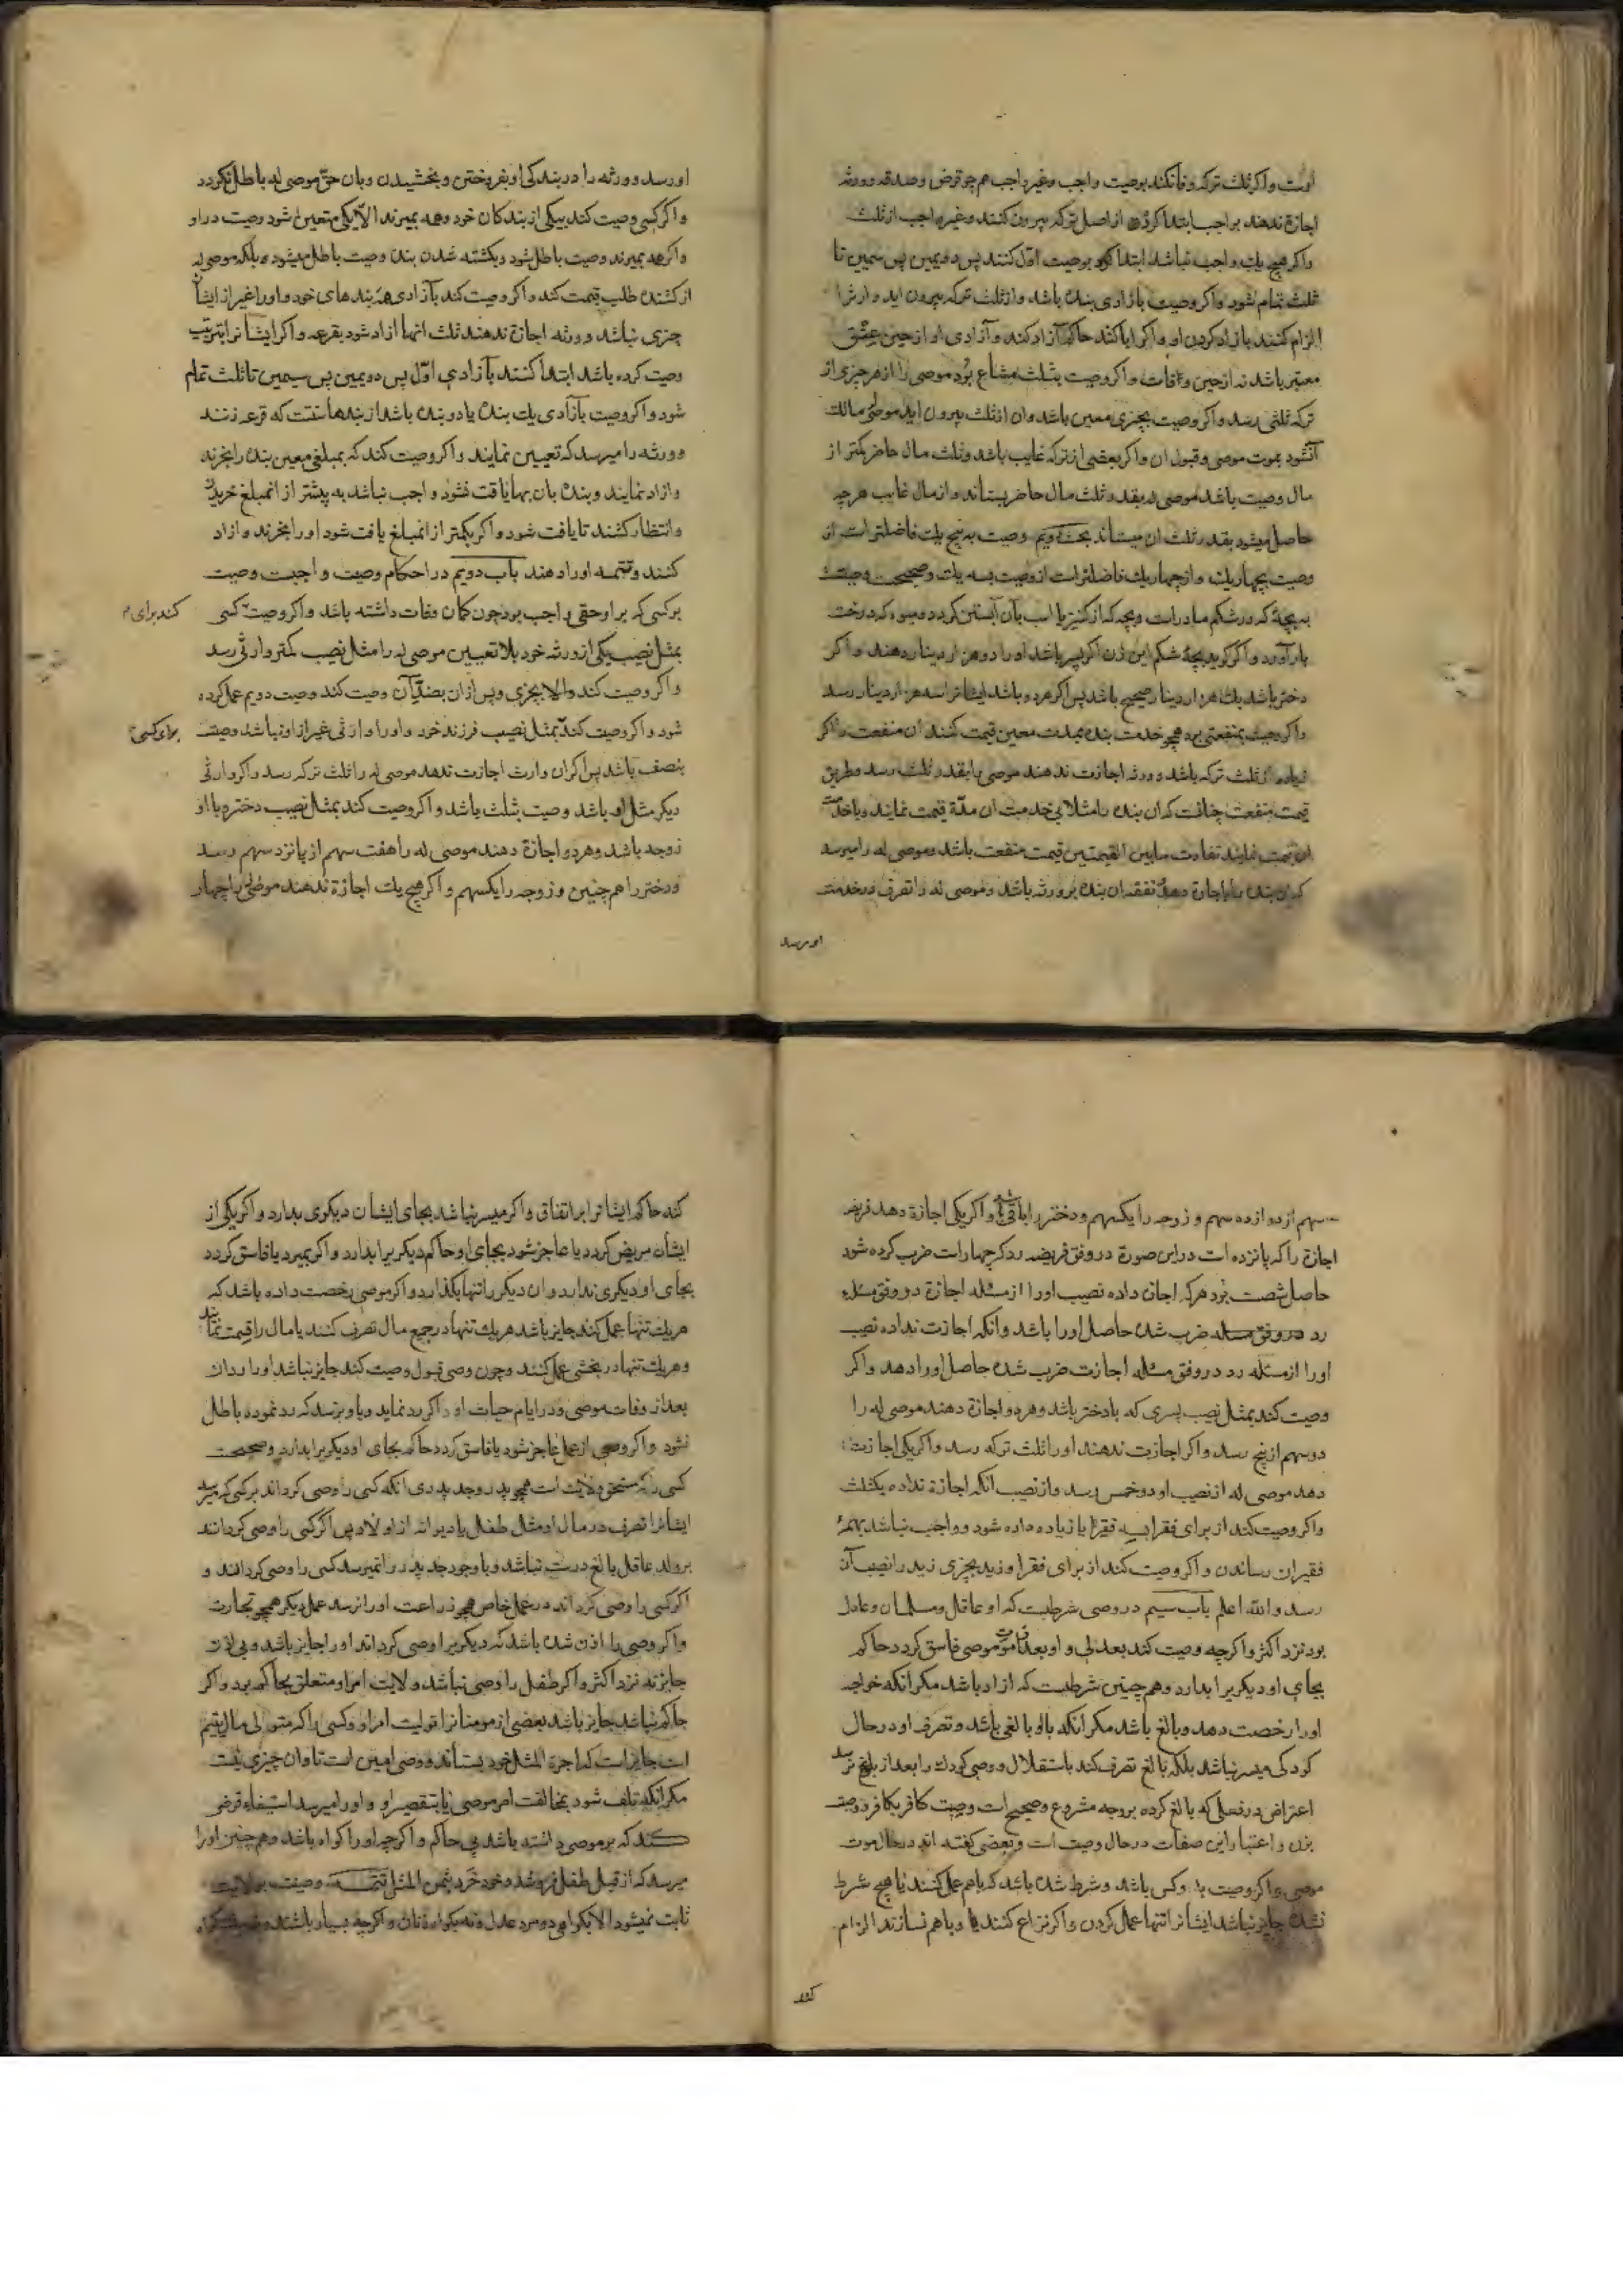 اوست و اکر ثلث ترکه وفا نکند بوصیت واجب و غیر واجب هم چو قرض و صدقه و ورثه
اجازة ندهند بواجب ابتدا کرده از اصل ترکه بیرون کنند و غیر واجب از ثلث
و اکر هیچ یك واجب نباشد ابتدا کرده بوصیت اوّل کنند پس دویمین پس سیمین تا
ثلث تمام شود و اکر وصیت بازادی بنده باشد و از ثلث ترکه بیرون اید وارث را
الزام کنند بازاد کردن او و اکر ابا کند حاکم آزاد کند و آزادی او از حین عتق
معتبر باشد نه از حین وفات و اکر وصیت بثلث مشاع بود موصی را از هر چیزی از
ترکه ثلثی رسد و اکر وصیت بچیزی معین باشد و ان از ثلث بیرون اید موصی له مالك
آنشود بموت موصی و قبول ان و اکر بعضی از ترکه غایب باشد و ثلث مال حاضر کمتر از
مال وصیت باشد موصی له بقدر ثلث مال حاضر بستاند و از مال غایب هرچه
حاصل میشود بقدر ثلث ان میستاند بحث دویم وصیت به پنج یك فاضلتر است از
وصیت بچهار یك و از چهار یك فاضلتر است از وصیت بسه یك و صحیحست وصیت
به بچهٔ که در شکم مادر است و بچه که از کنیز یا اسب بآن آبستن کردد و میوه که درخت
بار آورد و اکر کوید بچهٔ شکم این زن اکر پسر باشد او را دو هزار دینار دهند و اکر
دختر باشد یك هزار دینار صحیح باشد پس اکر هر دو باشد ایشانرا سه هزار دینار رسد
و اکر وصیت بمنفعتی بود همچو خدمت بنده بمدت معین قیمت کنند ان منفعت را اکر
زیاده از ثلث ترکه باشد و ورثه اجازت ندهند موصی را بقدر ثلث رسد و طریق
قیمت منفعت چنانست که ان بنده را مثلا بی خدمت ان مدّة قیمت نمایند و با خدمت
ان قیمت نمایند تفاوت مابین القیمتین قیمت منفعت باشد و موصی له را میرسد
که ان بنده را باجازة دهد و نفقه ان بنده بر ورثه باشد و موصی له را تصرف در خدمت
او رسد
او رسد و ورثه را در بندکی او بفروختن و بخشیدن و بان حقّ موصی له باطل نکردد
و اکر کسی وصیت کند بیکی از بندکان خود و همه بمیرند الّا یکی متعین شود وصیت در او
و اکر همه بمیرند وصیت باطل شود و بکشته شدن بنده وصیت باطل میشود بلکه موصی له
از کشنده طلب قیمت کند و اکر وصیت کند بآزادی همه بندهای خود و او را غیر از ایشان
چیزی نباشد و ورثه اجازة ندهند ثلث انها ازاد شود بقرعه و اکر ایشانرا بترتیب
وصیت کرده باشد ابتدأ کنند بآزادی اوّل پس دویمین پس سیمین تا ثلث تمام
شود و اکر وصیت بآزادی یك بنده یا دو بنده باشد از بندها سنتست که قرعه زنند
و ورثه را میرسد که تعیین نمایند و اکر وصیت کند که بمبلغی معین بنده را بخرند
و ازاد نمایند و بنده بان بها یافت نشود واجب نباشد به پیشتر از انمبلغ خریدن
و انتظار کشند تا یافت شود و اکر بکمتر از انمبلغ یافت شود او را بخرند و ازاد
کنند و تتمه او را دهند باب دویم در احکام وصیت و اجبست وصیت
بر کسی که بر او حقی واجب بود چون کمان وفات داشته باشد و اکر وصیت کسی
کند برای
بمثل نصیب یکی از ورثه خود بلا تعیین موصی له را مثل نصیب کمتر وارثی رسد
و اکر وصیت کند والا بچیزی و پس از ان بضدّ آن وصیت کند وصیت دویم عمل کرده
شود و اکر وصیت کند بمثل نصیب فرزند خود و او را وارثی غیر از او نباشد وصیت
برای کسی
بنصف باشد پس اکر ان وارث اجازت ندهد موصی له را ثلث ترکه رسد و اکر وارثی
دیکر مثل او باشد وصیت بثلث باشد و اکر وصیت کند بمثل نصیب دختر و با او
زوجه باشد و هر دو اجازة دهند موصی له را هفت سهم از پانزده سهم رسد
و دختر را هم چنین و زوجه را یکسهم و اکر هیچ یك اجازة ندهند موصی له را چهار
سهم از دوازده سهم و زوجه را یکسهم و دختر را باقی باشد و اکر یکی اجازة دهد فریضه
اجازة را که پانزده است در این صورة در وفق فریضه رد که چهار است ضرب کرده شود
حاصل شصت بود هر که اجازت داده نصیب او را از مسئله اجازة در وفق مسئله
رد ضرب شده حاصل او را باشد و انکه اجازت نداده نصیب
او را از مسئله رد در وفق مسئله اجازت ضرب شده حاصل او را دهد و اکر
وصیت کند بمثل نصیب پسری که با دختر باشد و هر دو اجازة دهند موصی له را
دو سهم از پنج رسد و اکر اجازت ندهند او را ثلث ترکه رسد و اکر یکی اجازت
دهد موصی له از نصیب او دو خمس رسد و از نصیب انکه اجازة نداده یکثلث
و اکر وصیت کند از برای فقرا بسه فقیر یا زیاده داده شود و واجب نباشد بهمهٔ
فقیران رساندن و اکر وصیت کند از برای فقرا و زید بچیزی زید را نصیب آن
رسد والله اعلم باب سیم در وصی شرطست که او عاقل و مسلمان و عادل
بود نزد اکثر و اکر چه وصیت کند بعدلی و او بعد از موت موصی فاسق کردد حاکم
بجای او دیکریرا بدارد و هم چنین شرطست که ازاد باشد مکر انکه خواجه
او را رخصت دهد و بالغ باشد مکر انکه با او بالغی باشد و تصرف او در حال
کودکی میسر نباشد بلکه بالغ تصرف کند باستقلال و وصی کودك را بعد از بلوغ نرسد
اعتراض در فعلی که بالغ کرده بر وجه مشروع و صحیح است وصیت کافر بکافر و وصیت
بزن و اعتبار این صفات در حال وصیت است و بعضی کفته اند در حال موت
موصی و اکر وصیت بدو کس باشد و شرط شده باشد که باهم عمل کنند یا هیچ شرط
نشده جایز نباشد ایشانرا تنها عمل کردن و اکر نزاع کنند و باهم نسازند الزام
کند
کند حاکم ایشانرا بر اتفاق و اکر میسر نباشد بجای ایشان دیکری بدارد و اکر یکی از
ایشان مریض کردد یا عاجز شود بجای او حاکم دیکریرا بدارد و اکر بمیرد یا فاسق کردد
بجای او دیکری ندارد و ان دیکر را تنها بکذارد و اکر موصی رخصت داده باشد که
هر یك تنها عمل کند جایز باشد هر یك تنها در جمیع مال تصرف کنند یا مال را قسمت نمایند
و هر یك تنها در بخشی عمل کنند و چون وصی قبول وصیت کند جایز نباشد او را رد ان
بعد از وفات موصی و در ایام حیات او و اکر رد نماید و باو نرسد که رد نموده باطل
نشود و اکر وصی از عمل عاجز شود یا فاسق کردد حاکم بجای او دیکریرا بدارد و صحیحست
کسی را که مستحق ولایت است همچو پدر و جد پدری انکه کسی را وصی کرداند بر کسی که میرسد
ایشانرا تصرف در مال او مثل طفل یا دیوانه از اولاد پس اکر کسی را وصی کردانند
بر ولد عاقل بالغ درست نباشد و با وجود جد پدر را نمیرسد کسی را وصی کردانند و
اکر کسی را وصی کرداند در عمل خاص همچو زراعت او را نرسد عمل دیکر همچو تجارت
و اکر وصی را اذن شده باشد که دیکریرا وصی کرداند او را جایز باشد و بی اذن
جایز نه نزد اکثر و اکر طفل را وصی نباشد ولایت امر او متعلق بحاکم بود و اکر
حاکم نباشد جایز باشد بعضی از مومنانرا تولیت امر او و کسی را که متولی مال یتیم
است جایز است که اجرة المثل خود بستاند و وصی امین است تاوان چیزی نیست
مکر انکه تلف شود بمخالفت امر موصی یا بتقصیر او و او را میرسد استیفاء قرضی
کند که بر موصی داشته باشد بی حاکم و اکرچه او را کواه باشد و هم چنین او را
میرسد که از قبل طفل فروشد و خود خرد بثمن المثل تتمه وصیت بولایت
ثابت نمیشود الا بکواهی دو مرد عدل و نه بکواه زنان و اکرچه بسیار باشند